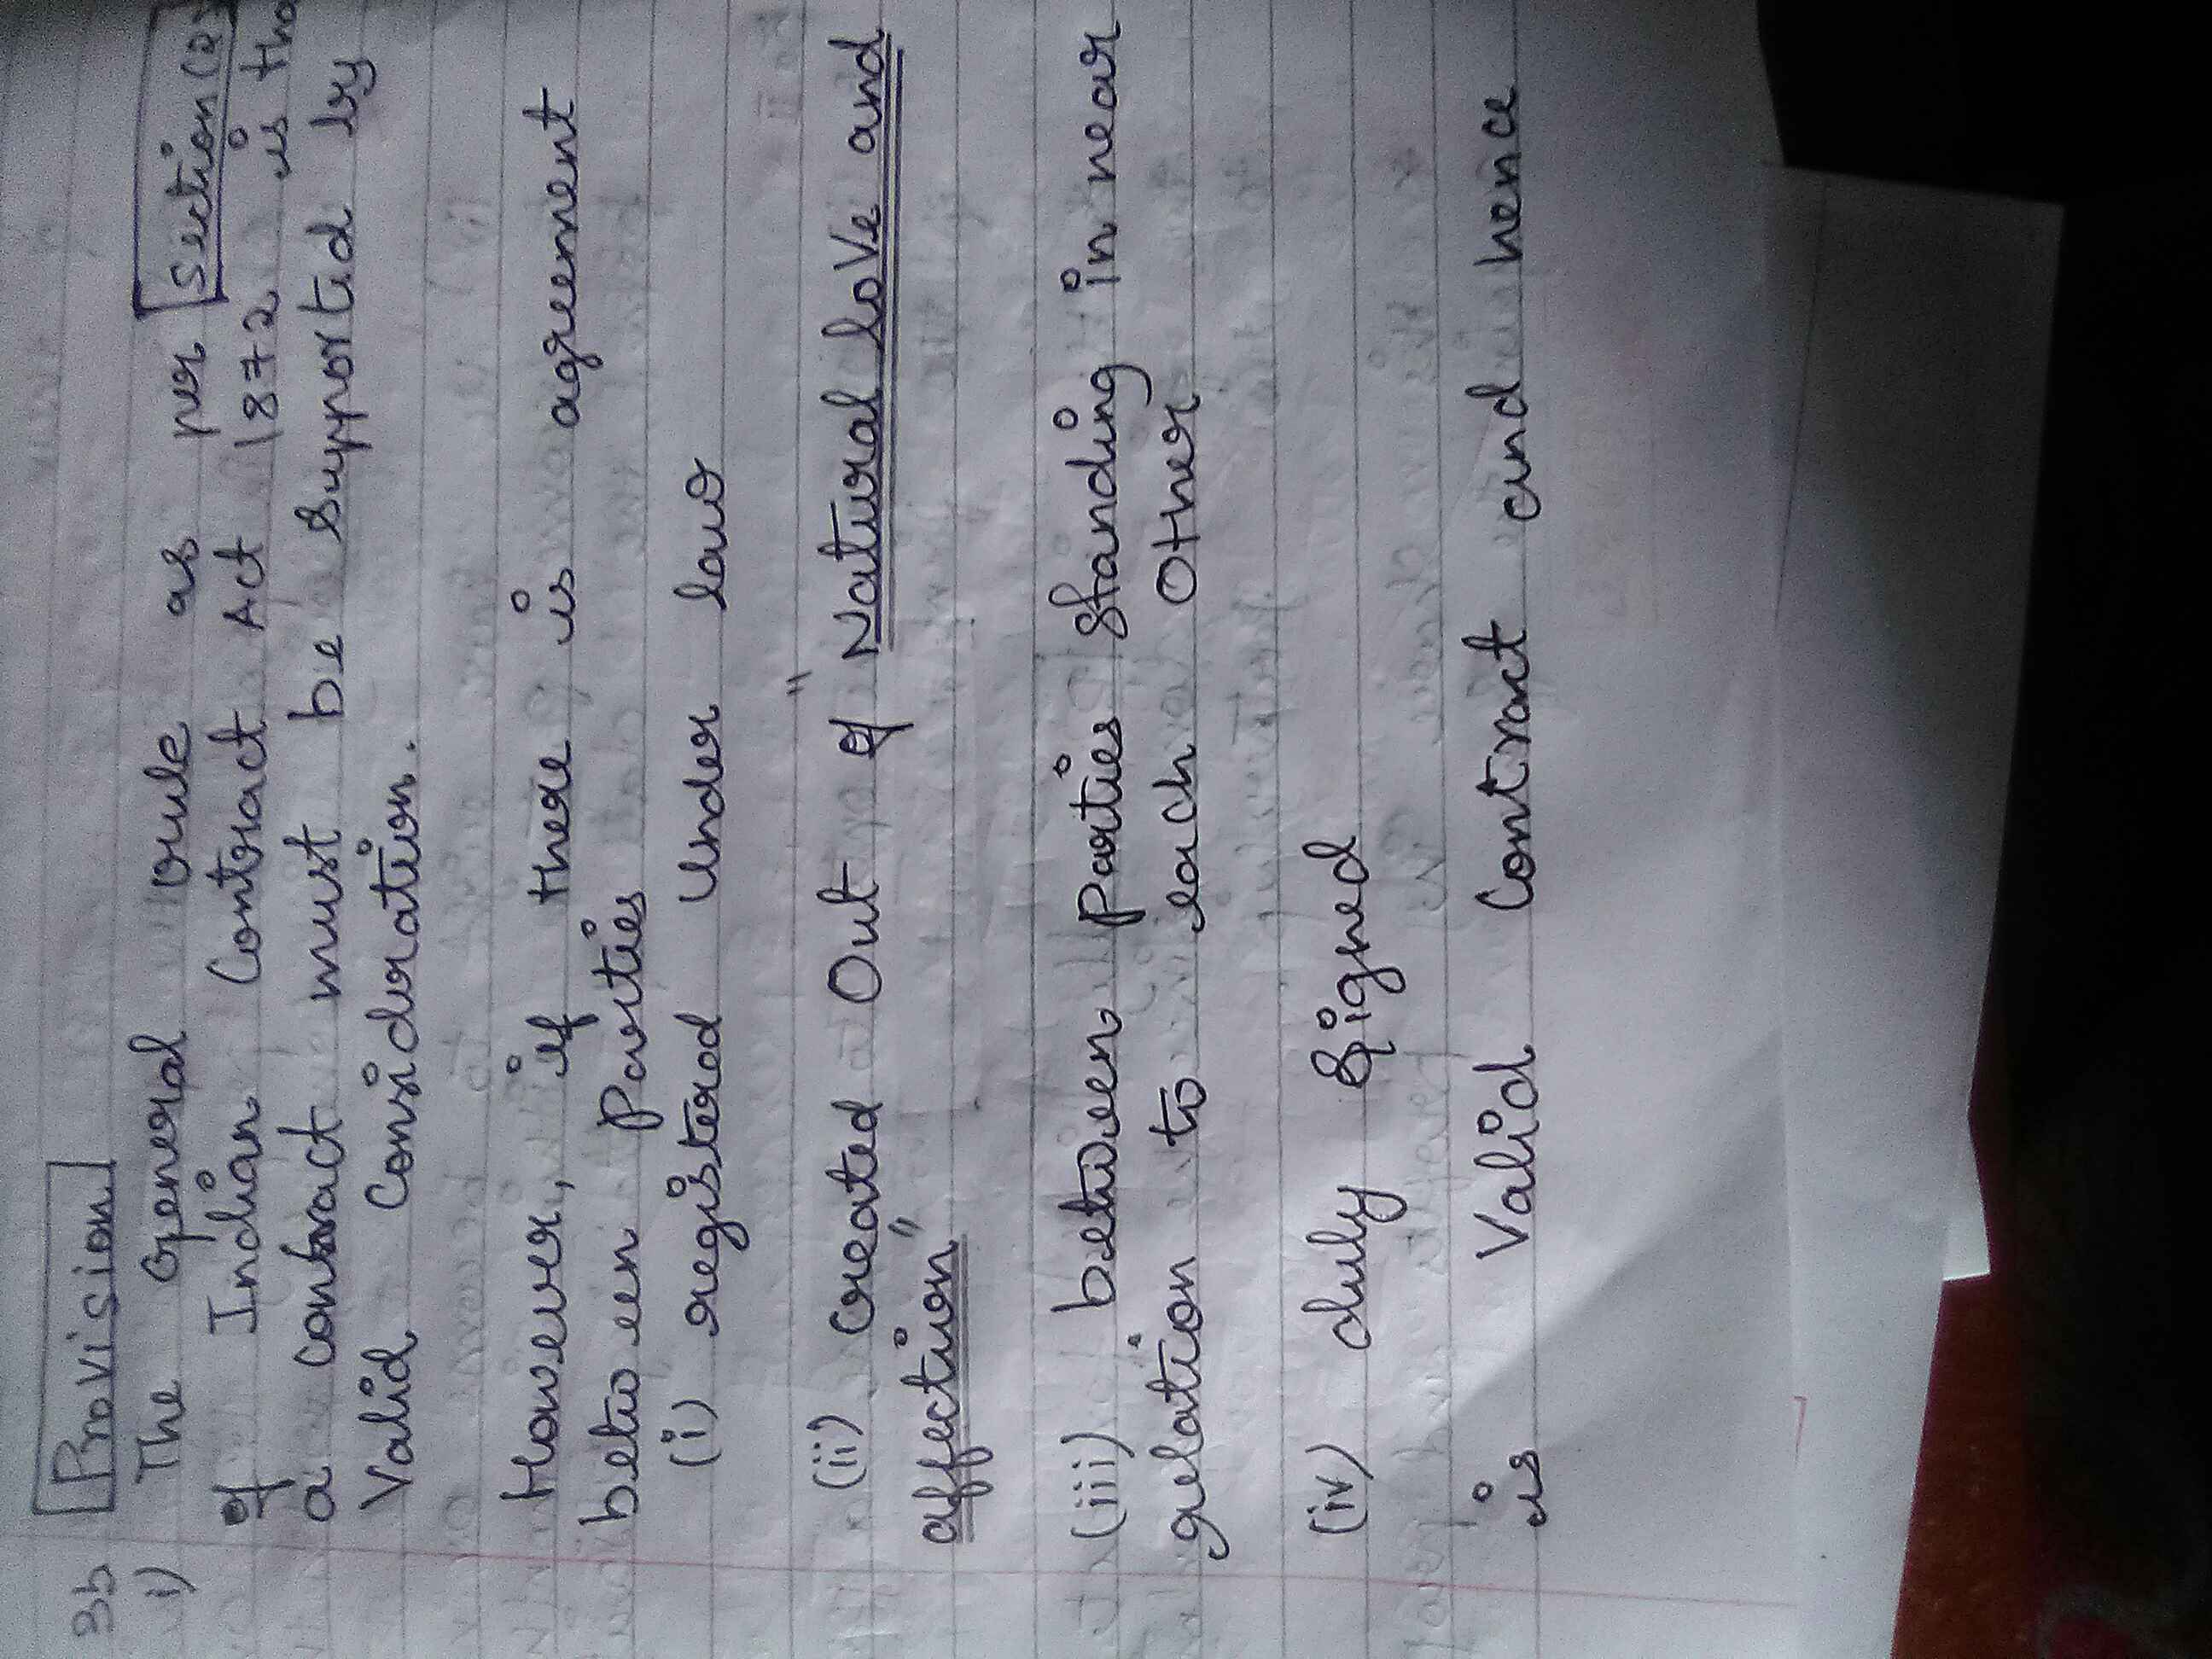 3b Provision
i) The general rule as per Section (2)
of Indian Contract Act 1872 is tha
a contract must be supported by
Valid Consideration.
However, if there is agreement
between parties
(i) registered under law
(ii) created Out of "Natural love and
affection"
(iii) between parties standing in near
relation to each Other
(iv) duly signed
is Valid Contract and hence